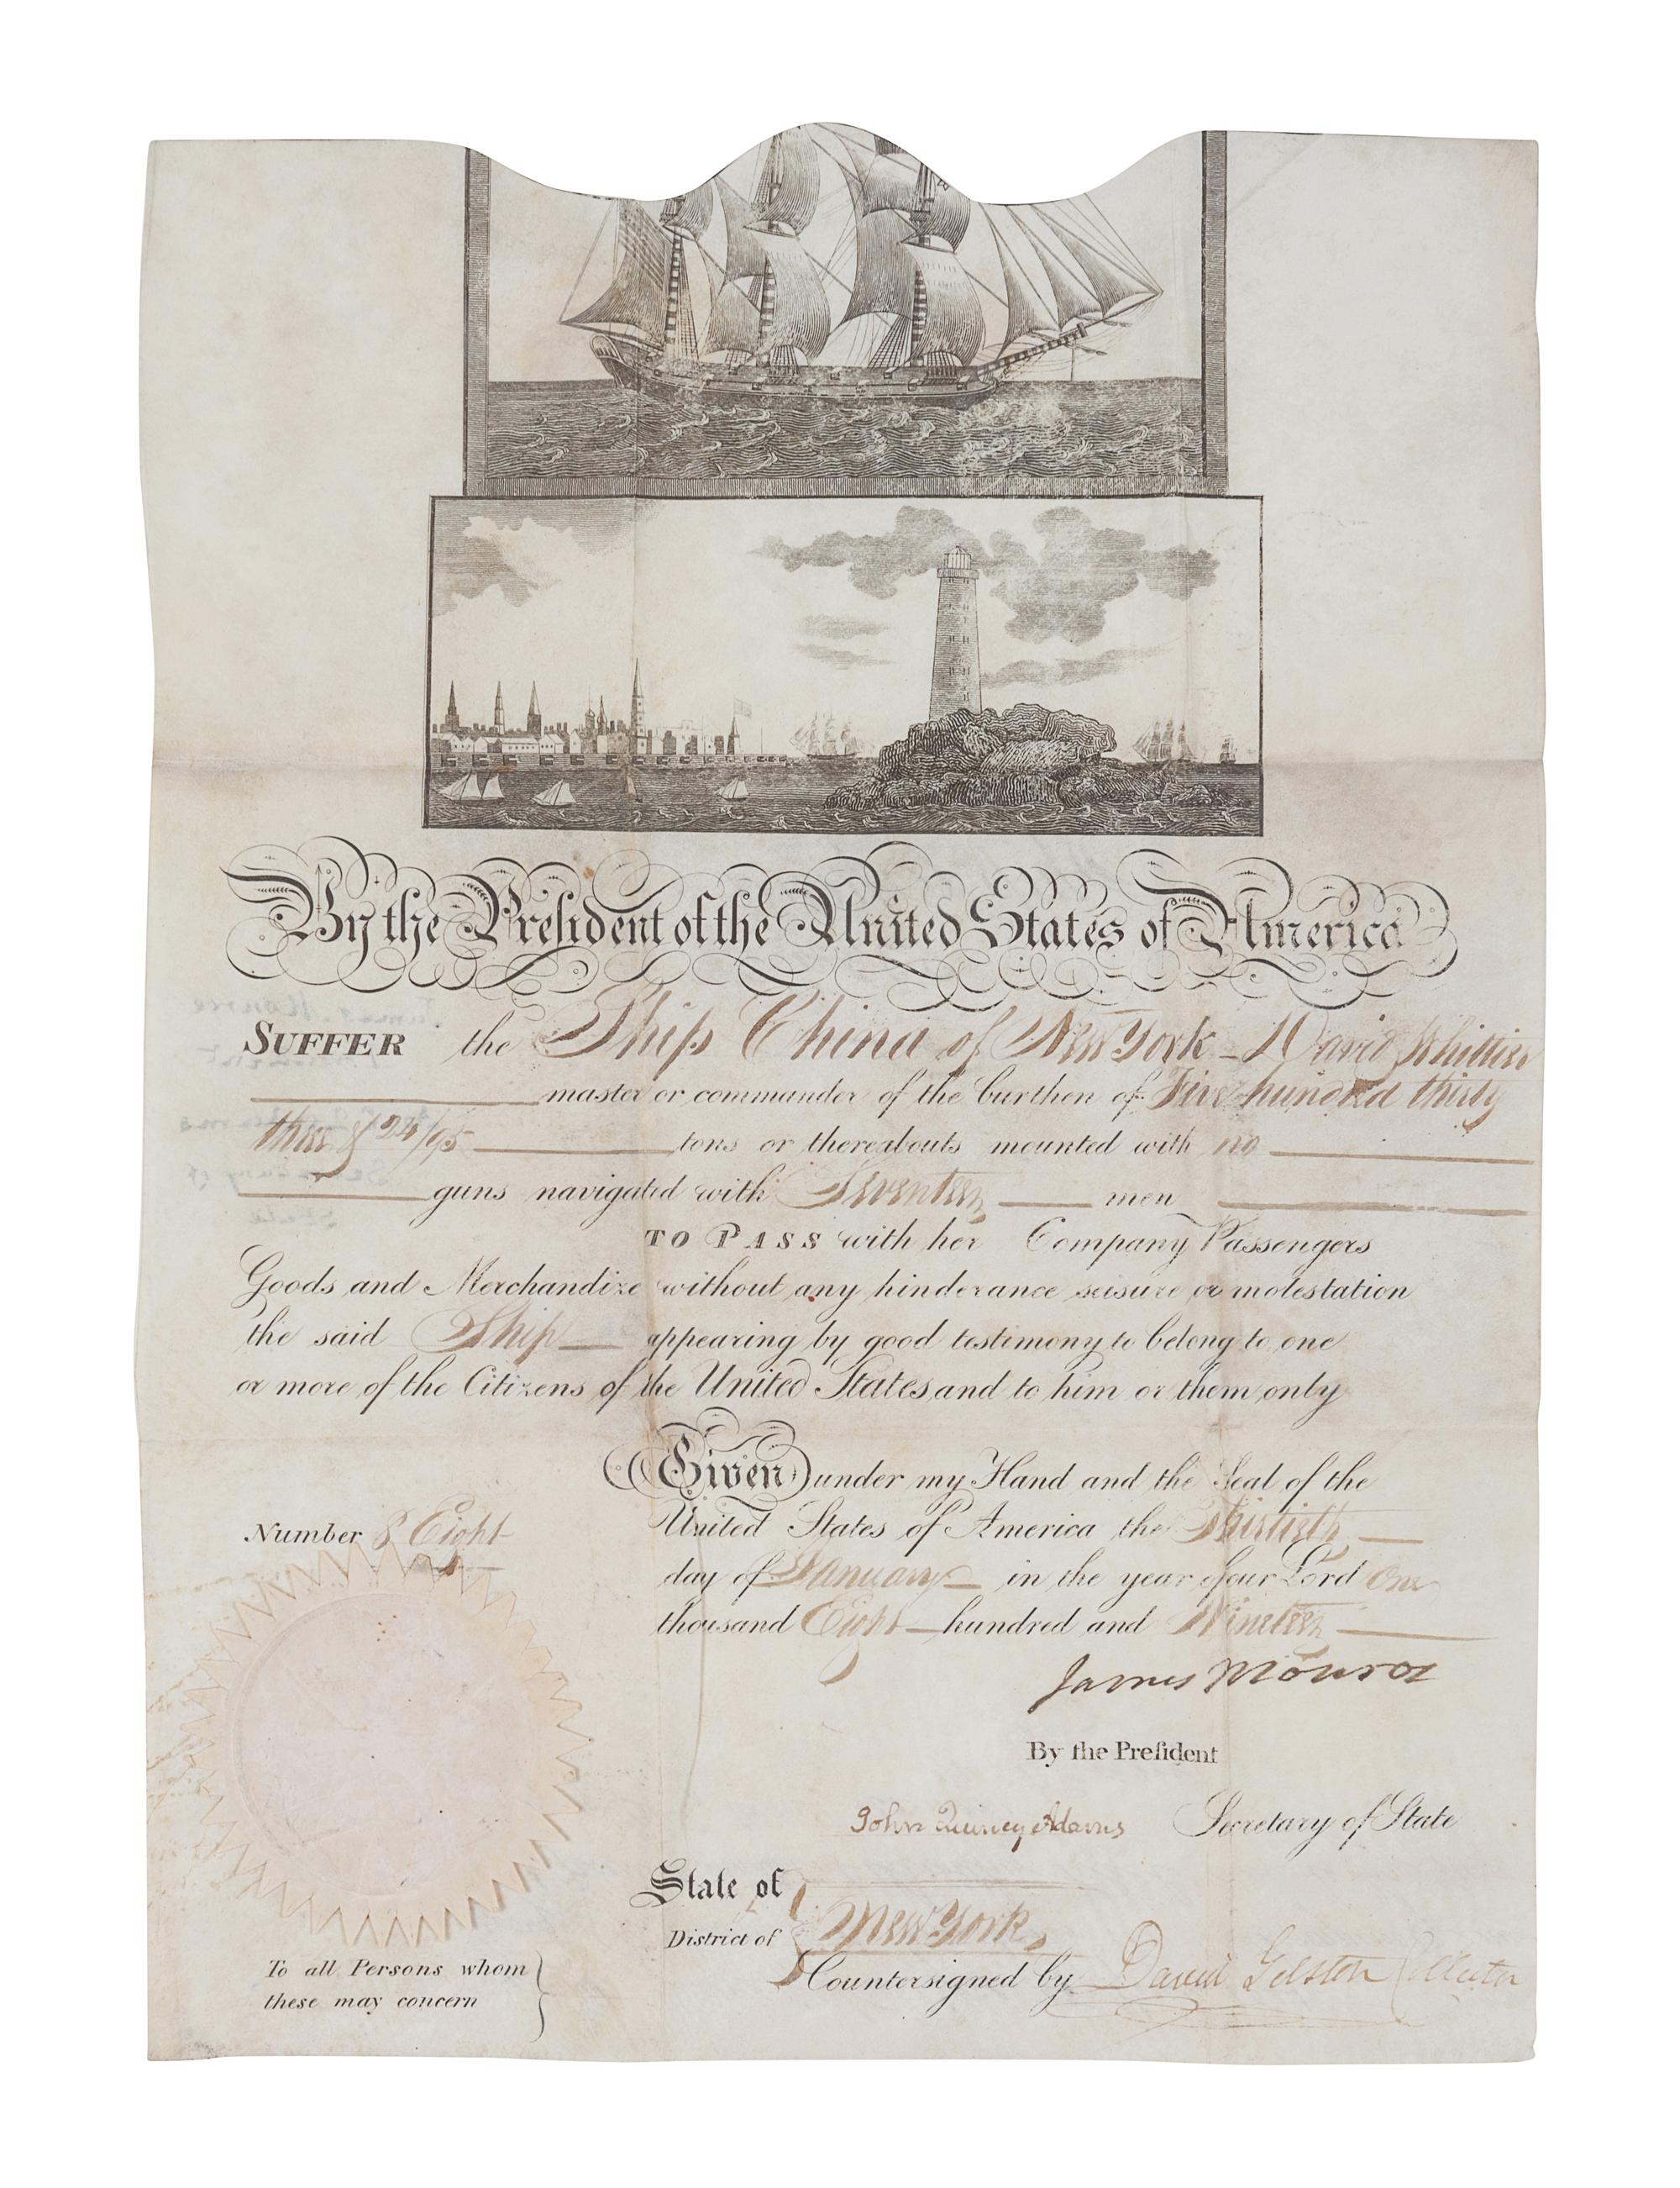 By the Preſident of the United States of America
SUFFER the Ship China of New York - David Whittier
master or commander of the burthen of Five hundred thirty
three & 24/95 tons or thereabouts mounted with no
guns navigated with Seventeen men
TO PASS with her Company Passengers
Goods and Merchandize without any hinderance seisure or molestation
the said Ship appearing by good testimony to belong to one
or more of the Citizens of the United States and to him or them only
Given under my Hand and the Seal of the
Number 8 Eight
United States of America the Thirtieth
day of January in the year of our Lord One
thousand Eight hundred and Nineteen
James Monroe
By the Preſident
John Quincy Adams Secretary of State
State of
District of New York,
Countersigned by David Gelston Collector
To all Persons whom
these may concern